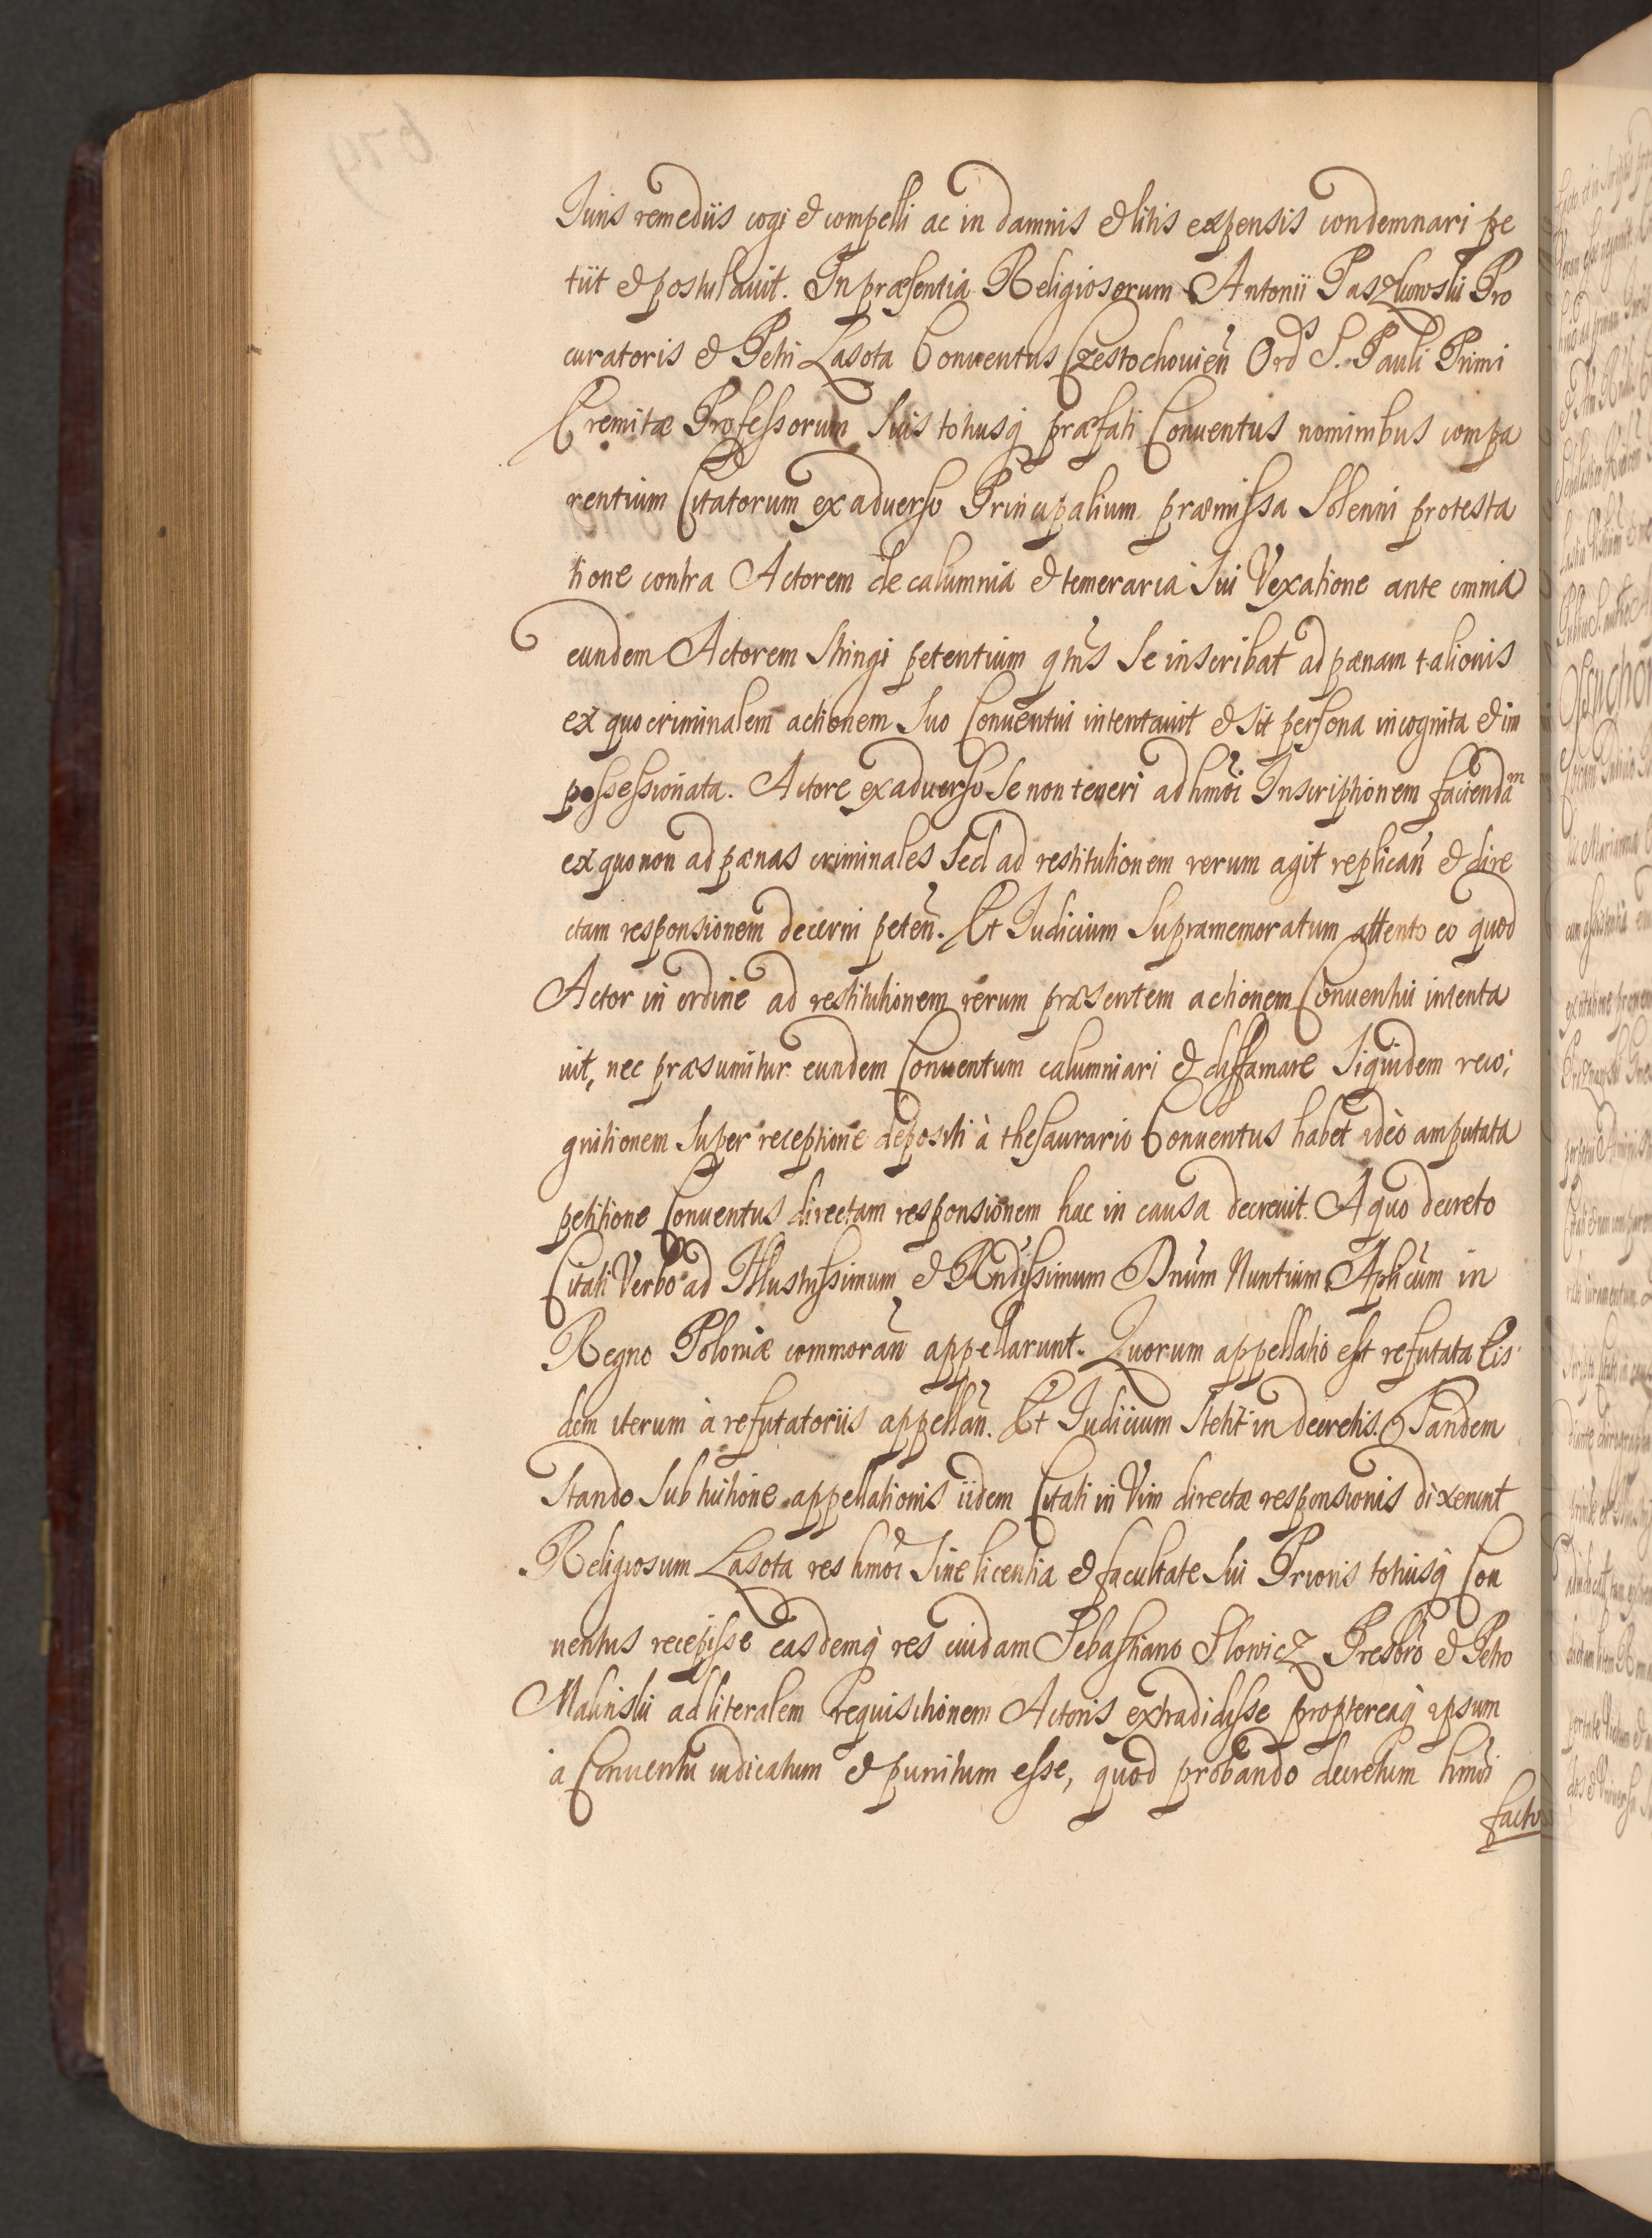 Iuris remediis cogi et compelli ac in damnis et litis expensis condemnari pe
tiit et postulauit. In præsentia Religiosorum Antonii Paszkowski Pro
curatoris et Petri Lasota Conuentus Częstochouien̄ Ordˢ S. Pauli Primi
Eremitæ Professorum suis totiusq̨ præfati Conuentus nominibus compa
rentium Citatorum ex aduerso Principalium præmissa solenni protesta
tione contra Actorem de calumnia et temeraria sui Vexatione ante omnia
eundem Actorem stringi petentium qtn̄s se inscribat ad pænam talionis
ex quo criminalem actionem suo Conuentui intentauit et sit persona incognita et im
possessionata. Actore ex aduerso se non teneri ad hmōi Inscriptionem faciendaᵐ
ex quo non ad pænas criminales sed ad restitutionem rerum agit replican̄ et dire
ctam responsionem decerni peten̄. Et Iudicium supramemoratum attento eo quod
Actor in ordine ad restitutionem rerum præsentem actionem Conuentui intenta
uit, nec præsumitur eundem Conuentum calumniari et diffamare siquidem reco:
gnitionem super receptione depositi à thesaurario Conuentus habet ideò amputata
petitione Conuentus directam responsionem hac in causa decreuit. A quo decreto
Citati Verbo ad Illustrissimum et Rn̄dissimum Dn̄um Nuntium Aplicūm in
Regno Poloniæ commoran̄ appellarunt. Quorum appellatio est refutata Eis
dem iterum à refutatoriis appellan̄. Et Iudicium stetit in decretis. Tandem
Stando sub tuitione appellationis iidem Citati in Vim directæ responsionis dixerunt
Religiosum Lasota res hmōi sine licentia et facultate sui Prioris totiusq̨ Con
uentus recepisse easdemq̨ res cuidam Sebastiano Slowicz Presb̄ro et Petro
Malinski ad literalem requisitionem Actoris extradidisse proptereaq̨ ipsum
à Conuentu iudicatum et punitum esse, quod probando decretum hmōi
facto